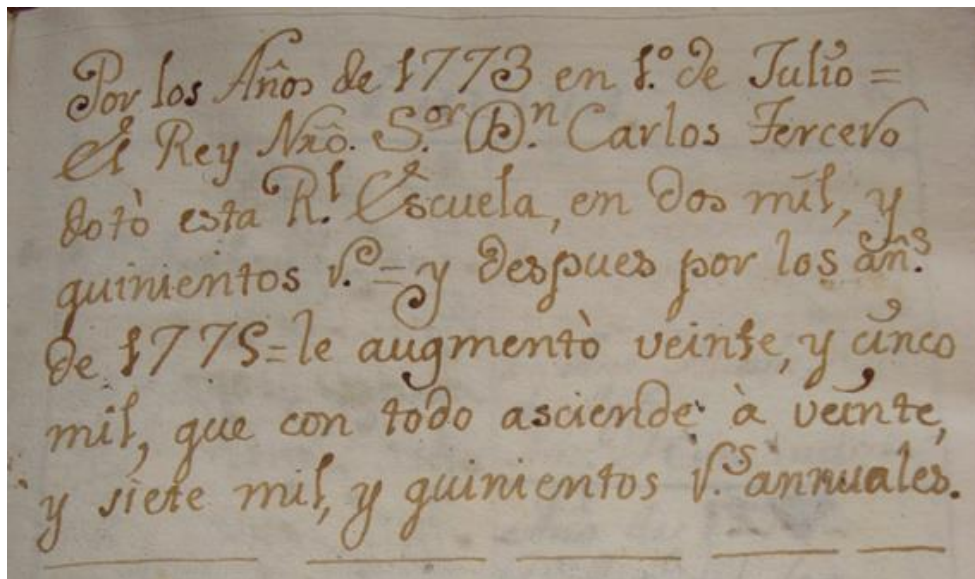 Por los Años de 1773 en 1.º de Julio =
el Rey Nrô. S.ºʳ D.ⁿ Carlos Tercero
dotò esta R.ˡ Escuela, en dos mil, y
quinientos v.ˢ = y despues por los añ.ˢ
de 1775 = le augmentò veinte, y cinco
mil, que con todo asciende à veinte,
y siete mil, y quinientos v.ˢ annuales.